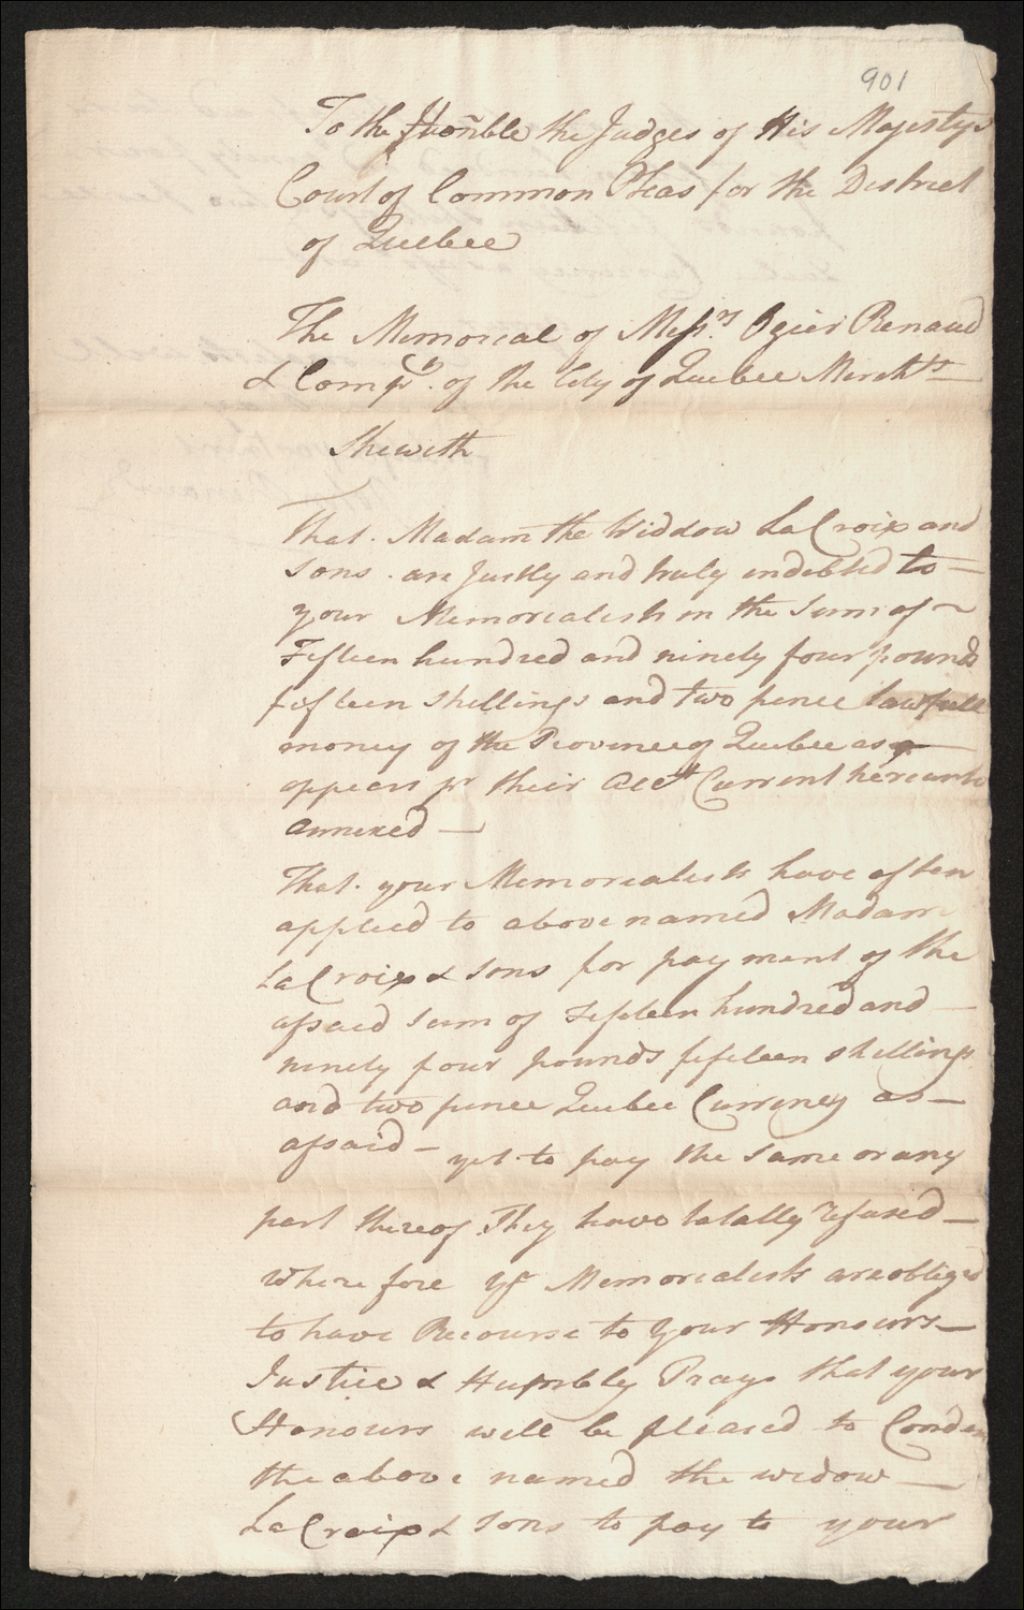 901
To the Honble the Judges of His Majestys
Court of Common Pleas for the District
of Quebec
The Memorial of Messrs Ogier Renaud
& Compy. of the City of Quebec Merchts
Sheweth
That. Madam the Widdow LaCroix and
Sons. are Justly and truly indebted to
your Memorialists in the Sum of
Fifteen hundred and ninety four pounds
fifteen shillings and two pence lawfull
money of the Province of Quebec as
appears pr their Acct Current hereunto
annexed
That. your Memorialists have often
applied to above named Madam
LaCroix & Sons for payment of the
afsaid Sum of Fifteen hundred and
ninety four pounds fifteen shillings
and two pence Quebec Currency as
afsaid - yet to pay the Same or any
part thereof They have totally refused
wherefore yr Memorialists are obliged
to have Recourse to your Honours
Justice & Humbly Prays that your
Honours will be pleased to Condem
the above named the widow
LaCroix & Sons to pay to your